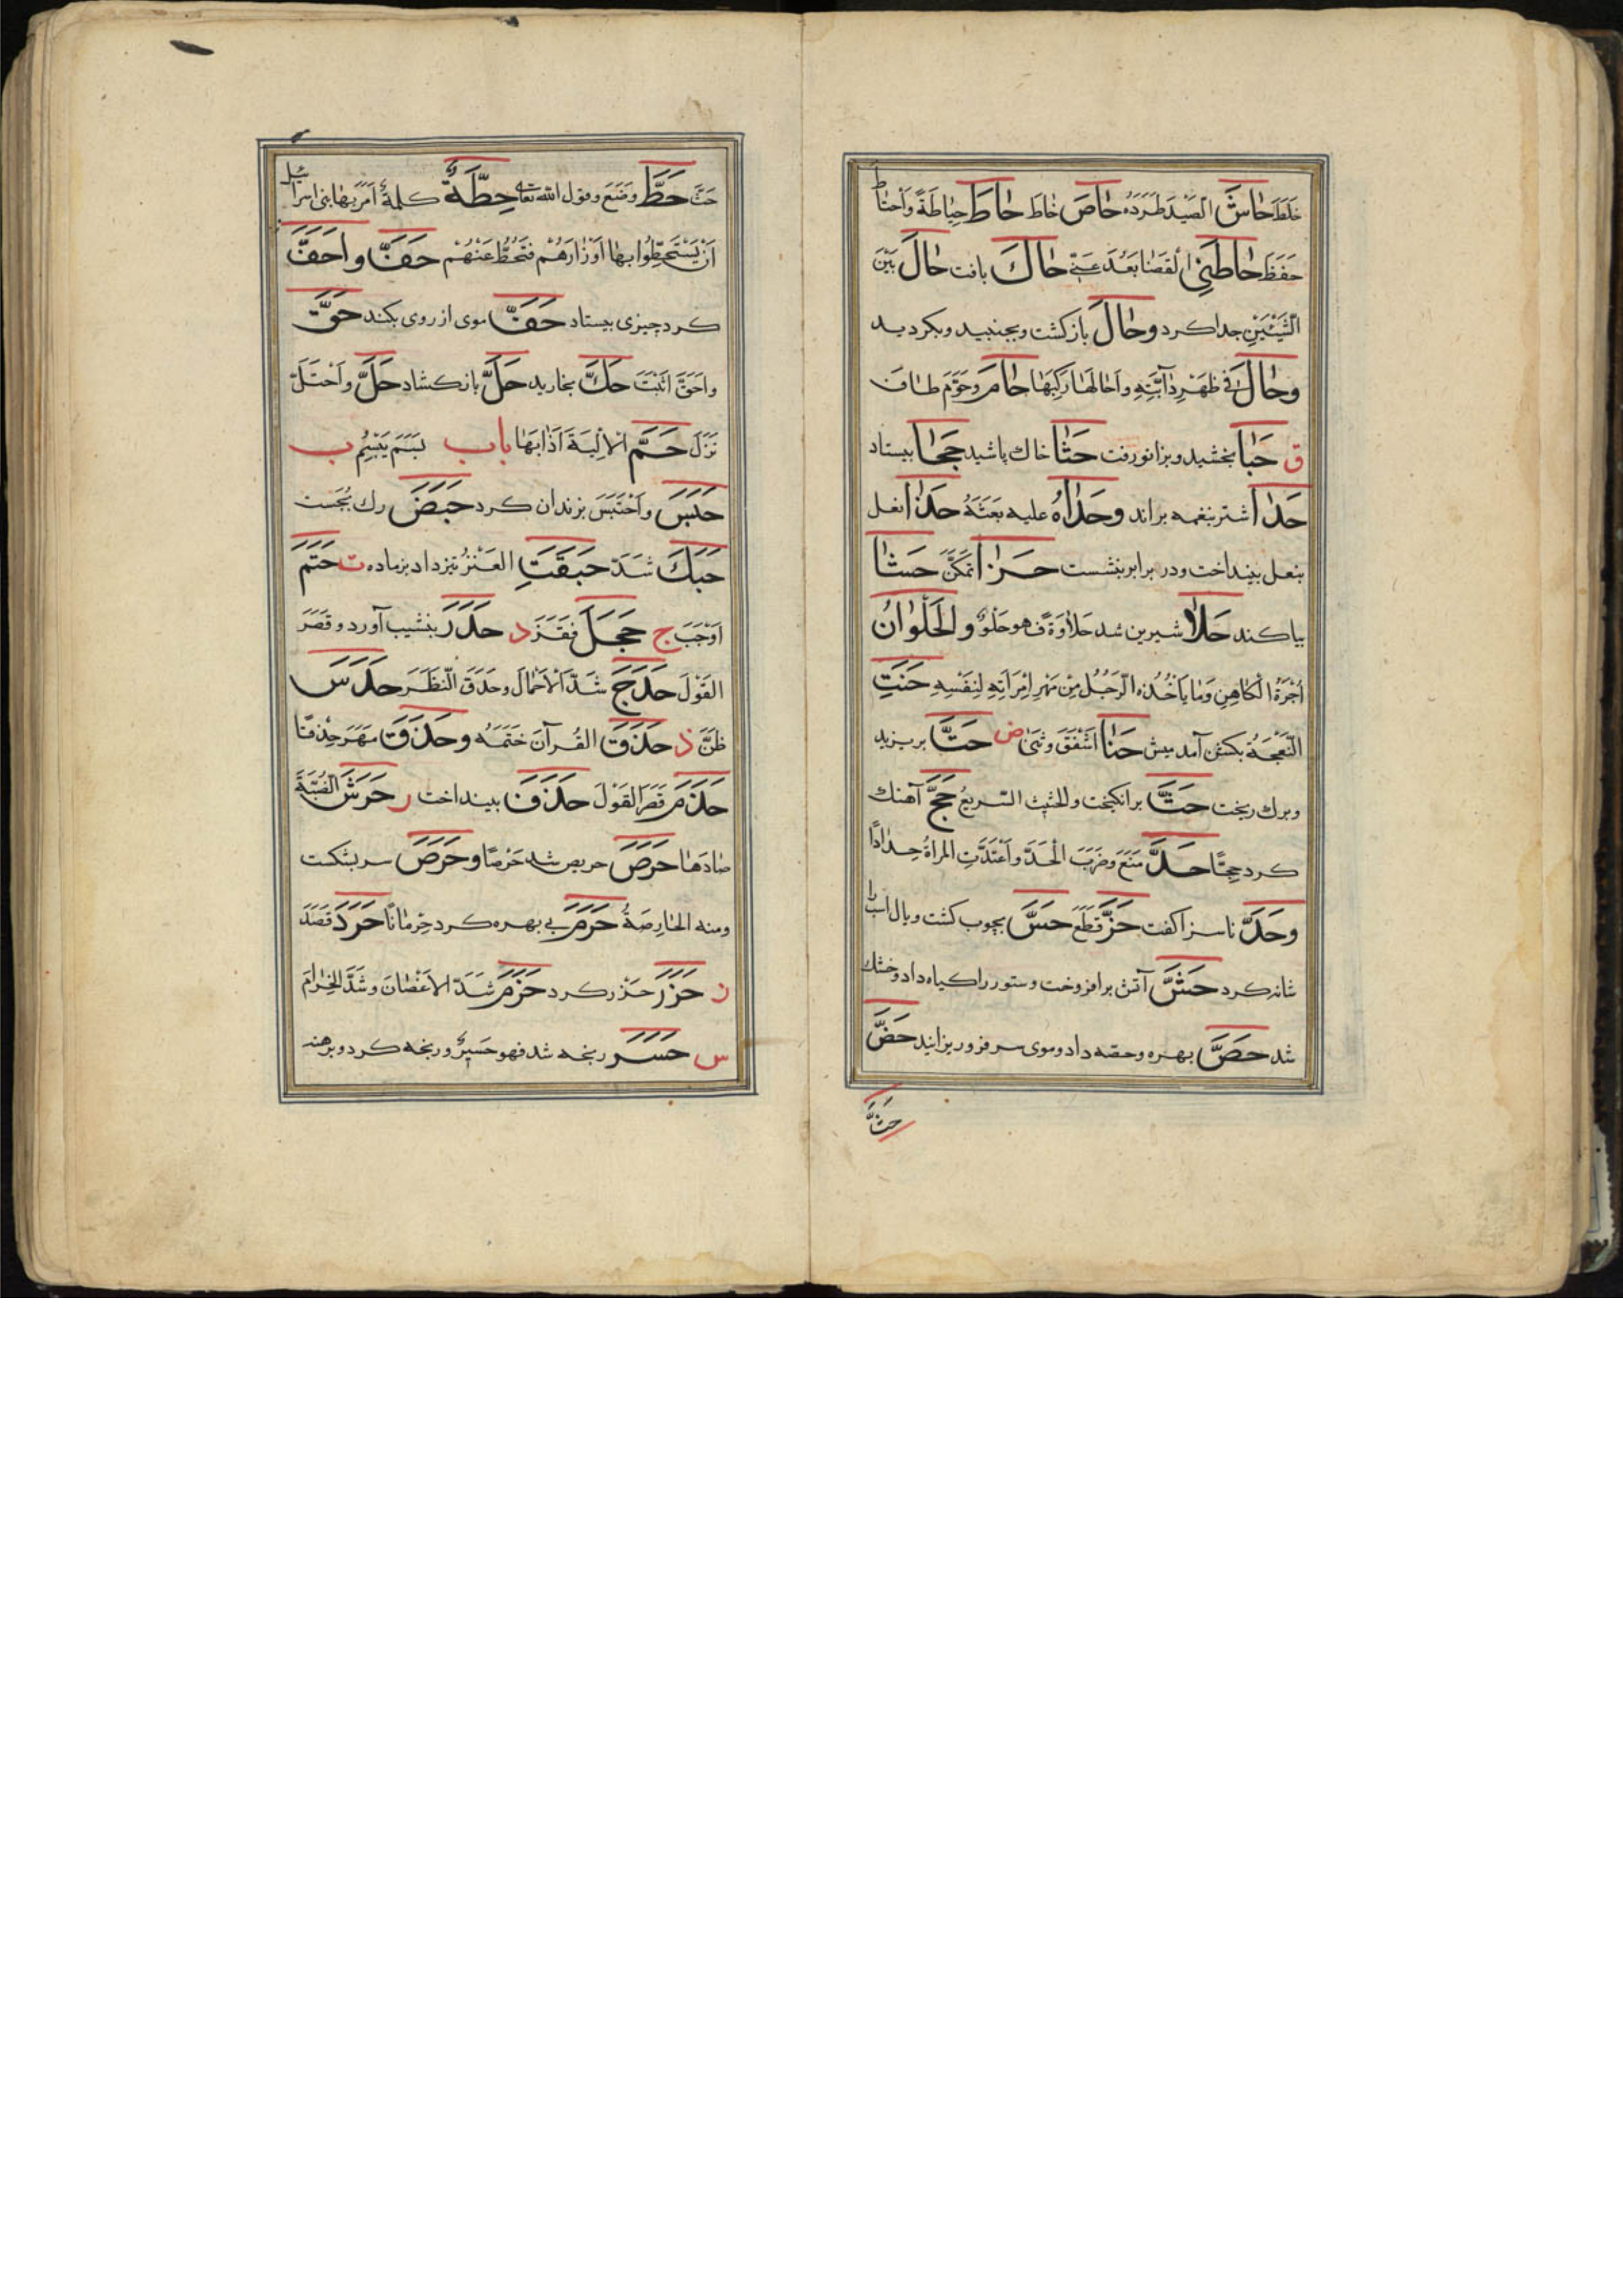 خَلَطَ حَاشَ الصَّيْدَ طَرَدَهُ حَاصَ خَاطَ حَاطَ حِيَاطَةً وَاحْتَاطَ
حَفِظَ حَاطَنِی القَصَا بَعُدَ عَنِّی حَاكَ بافت حَالَ بَيْنَ
الشَّيْئَيْنِ جدا كرد وحَالَ بازكشت وبجنبيد وبكرديد
وحَالَ فی ظَهْرِ دَابَّتِهِ واَحَالَهَا رَكِبَهَا حَامَ وحَوَّمَ طاف
ق حَبَا بخشيد وبزانو رفت حَثَا خاك پاشيد حَجَا بيستاد
حَدَا اشتر بنغمه براند وحَدَاهُ عليه بَعَثَهُ حَذَا نعل
بنعل بينداخت ودر برابر بنشست حَزَا تَمَكَّنَ حَشَا
بياكند حَلَا شيرين شد حَلَاوَةً فهو حُلْوٌ والحُلْوَانُ
اُجْرَةُ الْكَاهِنِ وَمَا يَاْخُذُهُ الرَّجُلُ مِنْ مَهْرِ امْرَاَتِهِ لِنَفْسِهِ حَنَتِ
النَّعْجَةُ بكشن آمد ميش حَنَا اَشْفَقَ وثَنَى ض حَتَّ بريزيد
وبرك ريخت حَثَّ برانكيخت والحثيث السَّرِيعُ حَجَّ آهنك
كرد حِجًّا حَدَّ مَنَعَ وضَرَبَ الْحَدَّ واعْتَدَّتِ المراةُ حِدَادًا
وحَدَّ ناسزا كفت حَزَّ قَطَعَ حَسَّ بچوب كشت وبال اسب را
شانه كرد حَشَّ آتش برافروخت وستور را كياه داد وخشك
شد حَصَّ بهره وحصّه داد وموی سر فرو ريزانيد حَضَّ
حَثَّ
حَثَّ حَطَّ وَضَعَ وقول الله تعالى حِطَّةٌ كلمةٌ اُمِرَ بها بنی اسرائيل
اَنْ يَسْتَحِطُّوا بها اَوْزَارَهُمْ فتُحَطُّ عَنْهُمْ حَفَّ واَحَفَّ
كرد چيزی بيستاد حَفَّ موی از روی بكند حَقَّ
واَحَقَّ اَثْبَتَ حَكَّ بخاريد حَلَّ بازكشاد حَلَّ واَحْتَلَّ
نَزَلَ حَمَّ الاَلْيَةَ اَذَابَهَا باب بَسَمَ يَبْسِمُ ب
حَبَسَ واَحْتَبَسَ بزندان كرد حَبَضَ رك بجست
حَبَكَ شَدَّ حَبَقَتِ العَنْزُ تيز داد بز ماده ت حَتَمَ
اَوْجَبَ ج حَجَلَ فقَفَزَ د حَدَرَ بنشيب آورد وقَصَرَ
القَوْلَ حَدَجَ شَدَّ الاَحْمَالَ وحَدَقَ النَّظَرَ حَدَسَ
ظَنَّ ذ حَذَقَ القُرآنَ خَتَمَهُ وحَذَقَ مَهَرَ حِذْقًا
حَذَمَ قَصَرَ القَوْلَ حَذَفَ بينداخت ر حَرَشَ الضَّبَّةَ
صَادَهَا حَرَصَ حريص شد حَرْصًا وحَرَصَ سر بشكست
ومنه الحَارِصَةُ حَرَمَ بی بهره كرد حِرْمَانًا حَرَدَ قَصَدَ
ز حَزَرَ حذر كرد حَزَمَ شَدَّ الاَغْصَانَ وشَدَّ الحِزَامَ
س حَسَرَ رنجه شد فهو حَسِيرٌ ورنجه كرد وبرهنه